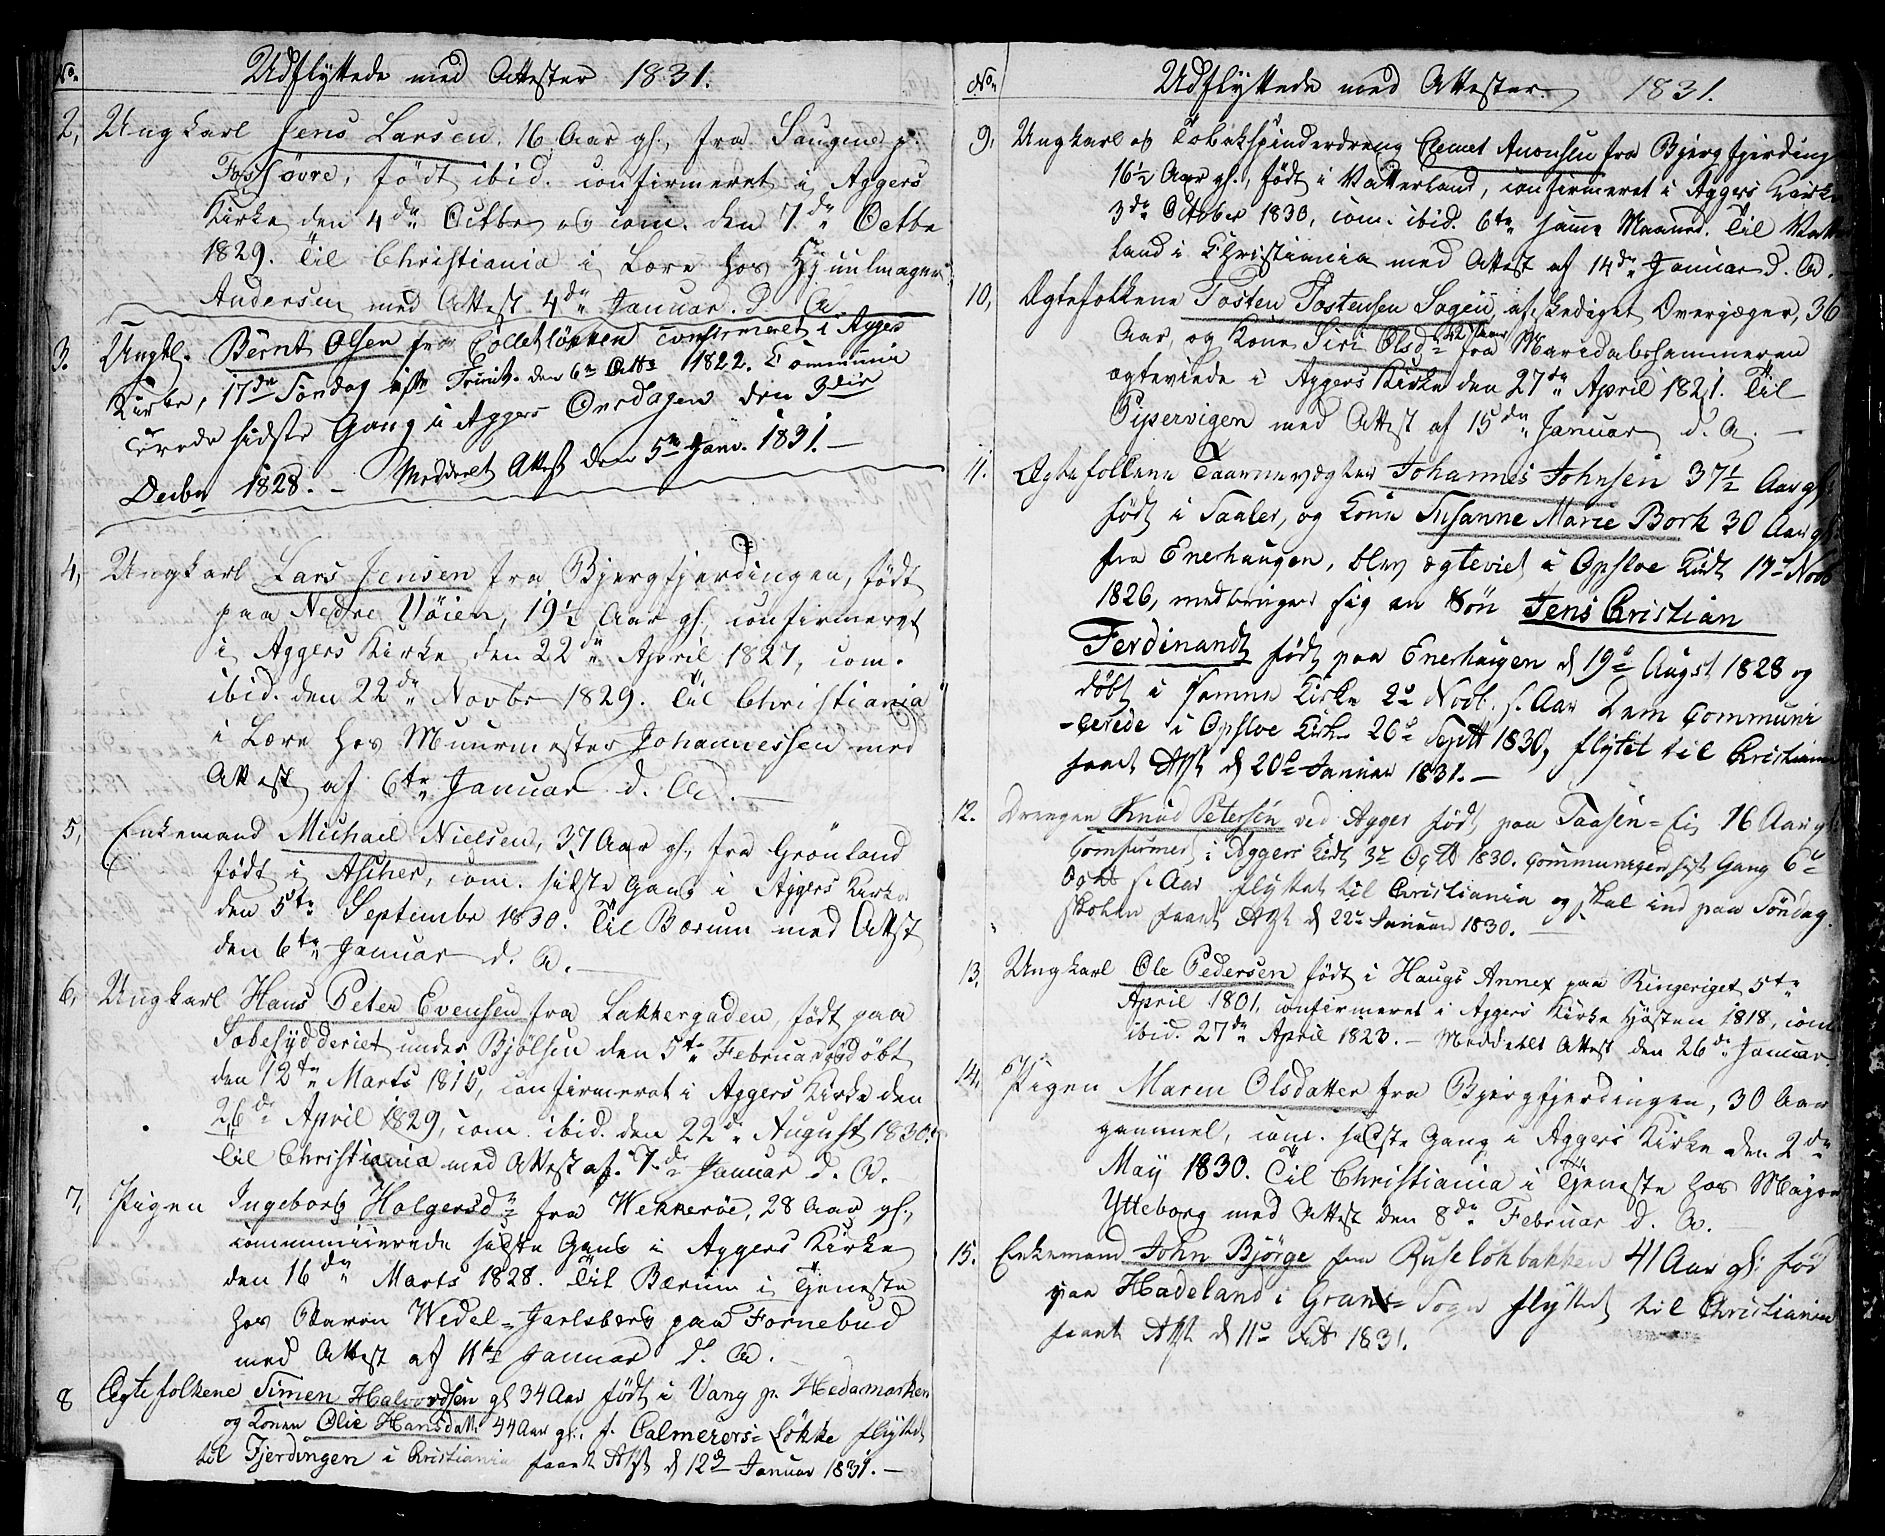 No.
Udflyttede med Attester 1831.
2, Ungkarl Jens Larsen. 16 Aar gl., fra Saugene p.
Fossøvre, født ibid. confirmeret i Aggers
Kirke den 4de Octbr og com. den 7de Octbr
1829. Til Christiania i Lære hos Hjuulmager
Andersen med Attest 4de Januar d. A.
3. Ungkl. Bernt Olsen fra Colletløkken confirmeret i Aggers
Kirke, 17de Søndag eft. Trinit. den 6te Octb 1822. Communi
cerede sidste Gang i Aggers Onsdagen den 3die
Decbr 1828. – Meddelt Attest den 5te Janv. 1831. –
4, Ungkarl Lars Jensen fra Bjergfjerdingen, født
paa Nedre Vöien, 19½ Aar gl., confirmeret
i Aggers Kirke den 22de April 1827, com.
ibid. den 22de Novbr 1829. Til Christiania
i Lære hos Muurmester Johannessen med
Attest af 6te Januar d. A. –
5, Enkemand Michael Nielsen, 37 Aar gl., fra Grönland
født i Ascher, com. sidste Gang i Aggers Kirke
den 5te Septembr 1830. Til Bærum med Attest
den 6te Januar d. A. –
6, Ungkarl Hans Peter Evensen fra Lakkergaden, født paa
Sæbesydderiet under Bjölsen den 5te Februar og döbt
den 12te Marts 1815, confirmeret i Aggers Kirke den
26de April 1829, com. ibid. den 22de August 1830.
Til Christiania med Attest af 7de Januar d. A.
7, Pigen Ingeborg Holgersdr fra Wekkeröe, 28 Aar gl.,
communicerede sidste Gang i Aggers Kirke
den 16de Marts 1828. Til Bærum i Tjeneste
hos Baron Wedel-Jarlsberg paa Fornebud
med Attest af 11te Januar d. A. –
8 Ægtefolkene Simen Halvordsen gl 34 Aar født i Vang p. Hedemarken
og Konen Olie Hansdatt. 44 Aar gl. f. Calmeiers-Løkke flyttet
til Fjerdingen i Christiania faaet Att. d 12de Januar 1831. –
No.
Udflyttede med Attester 1831.
9, Ungkarl og Tobakspinderdreng Clemet Amonsen fra Bjergfjerding
16½ Aar gl., født i Vatterland, confirmeret i Aggers Kirke
3de October 1830, com. ibid. 6te samme Maaned. Til Vatter
land i Christiania med Attest af 14de Januar d. A.
10, Ægtefolkene Tosten Tostensen Sagen, afskediget Overjæger, 36
Aar, og Kone Siri Olsdr 42 Aar fra Maridalshammeren
ægteviede i Aggers Kirke den 27de April 1821. Til
Pipervigen med Attest af 15de Januar d. A. –
11. Ægtefolkene Taarnevægter Johannes Johnsen 37½ Aar gl:
født i Saaler, og Kone Susanne Marie Bork 30 Aar gl:
fra Enerhaugen, blev ægteviet i Opsloe Kirke 17de Novb
1826, medbringer sig en Søn Jens Christian
Ferdinand født paa Enerhaugen d 19de Augst 1828 og
døbt i samme Kirke 2de Novb. s. Aar Dem Communi
-cerede i Opsloe Kirke 26de Septb 1830, flyttet til Christiania
faaet Att d 20de Januar 1831. –
12. Drengen Knud Petersen ved Agger født paa Taasen-Eie 16 Aar gl:
Comfirmert i Aggers Kirke 3de Octb 1830. Communiseret sidst Gang 6te
Octb s. Aar flyttet til Christiania og skal ind paa Söndag
skolen faaet Att d 22de Januar 1830. –
13. Ungkarl Ole Pedersen født i Haugs Annex paa Ringeriget 5te
April 1801, confirmeret i Aggers Kirke Høsten 1818, com.
ibid. 27de April 1823. – Meddeelt Attest den 26de Januar
14. Pigen Maren Olsdatter fra Bjergfjerdingen, 30 Aar
gammel, com. sidste Gang i Aggers Kirke den 2de
May 1830. Til Christiania i Tjeneste hos Major
Ytteborg med Attest den 8de Februar d. A. –
15. Enkemand John Björge fra Ruseløkbakken 41 Aar gl: fød
paa Hadeland i Grans Sogn flyttet til Christiania
faaet Att d 11te Feb 1831.